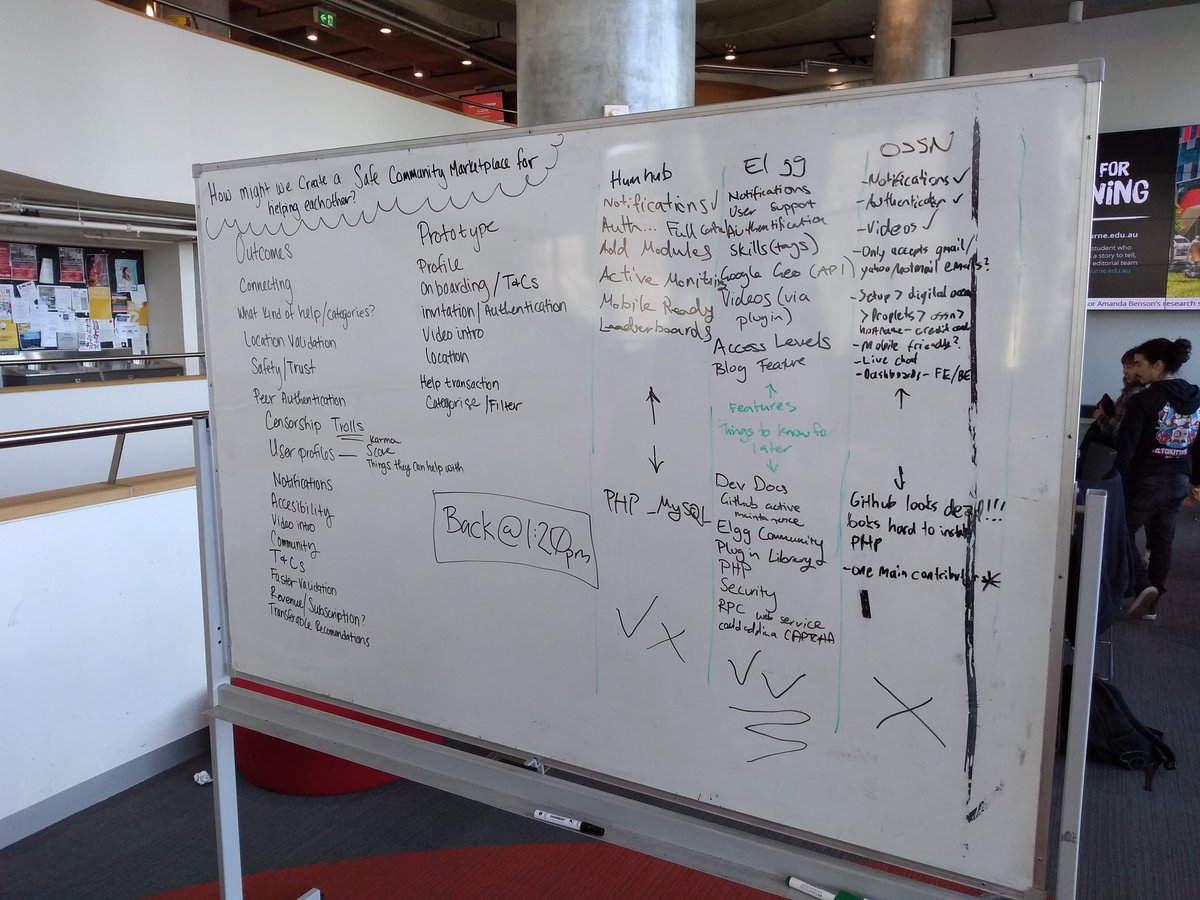 How might we create a Safe Community Marketplace for
helping eachother?
Outcomes
Connecting
What kind of help/categories?
Location Validation
Safety/Trust
Peer Authentication
Censorship Trolls
User profiles — Karma
Score
Things they can help with
Notifications
Accesibility
Video intro
Community
T&Cs
Faster Validation
Revenue/Subscription?
Transferable Recomendations
Prototype
Profile
Onboarding/T&Cs
invitation/Authentication
Video intro
Location
Help transaction
Categorise/Filter
Back@1:20pm
Humhub
Notifications✓
Auth... Full
Add Modules
Active
Mobile Ready
Leaderboards
PHP - MySQL
Elgg
Notifications
User support
Authentification
Skills(tags)
Google Geo (API)
Videos (via
plugin)
Access Levels
Blog Feature
Features
Things to know for
later
Dev Docs
Github active
maintenance
Elgg Community
Plugin Library
PHP
Security
RPC web service
CAPTCHA
OSSN
-Notifications ✓
-Authentication ✓
-Videos ✓
-Only accepts gmail/
yahoo/hotmail emails?
-Setup > digital
> Droplets > OSSN >
hostname - credit card
-Mobile friendly?
-Live chat
-Dashboards - FE/BE
Github looks dead!!!
looks hard to install
PHP
-one main contributor *
FOR
NING
rne.edu.au
student who
a story to tell,
editorial team
rne.edu.au
or Amanda Benson's research